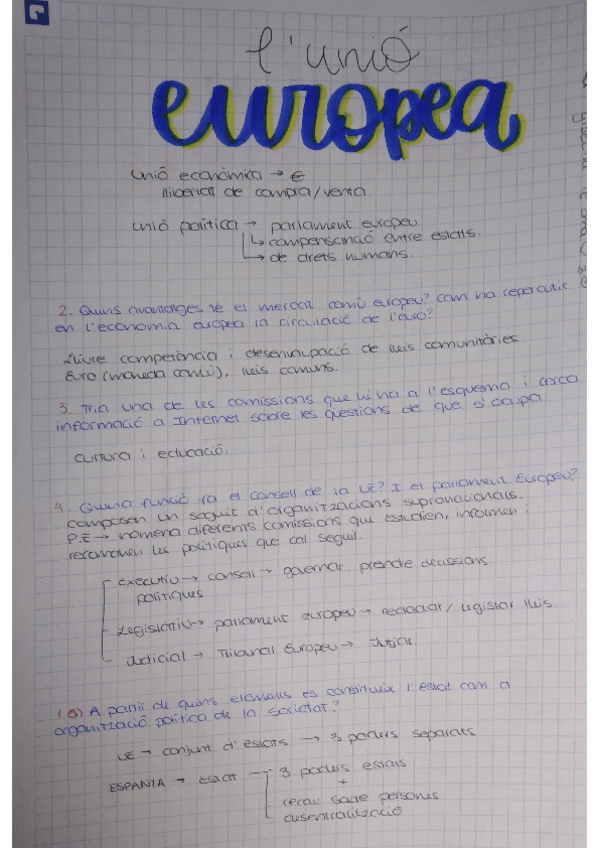 l'unió
europea
unió econòmica → €
llibertat de compra/venta.
unió política → parlament europeu
↳ compensació entre estats.
→ de drets humans.
2. Quins avantatges té el mercat comú europeu? Com ha repercutit
en l'economia europea la circulació de l'euro?
Lliure competència i desenvalupació de lleis comunitàries
Euro (moneda comú), lleis comuns.
3. Tria una de les comissions que hi ha a l'esquema i cerca
informació a Internet sobre les qüestions de que s'ocupa
cultura i educació.
4. Quina funció fa el consell de la UE? I el parlament Europeu?
composen un seguit d'organitzacions supranacionals.
P.E → nomena diferents comissions que estudien, informen i
recomanen les polítiques que cal seguir.
executiu → consell → governar, prendre decissions
polítiques
Legislatiu → parlament europeu → redactar/legislar lleis
Judicial → Tribunal Europeu → Jutjar
A partir de quins elements es constitueix l'Estat com a
organització política de la societat?
UE → conjunt d'estats → 3 poders separats
ESPANYA → Estat → 3 poders estats
+
recau sobre persones
descentralització